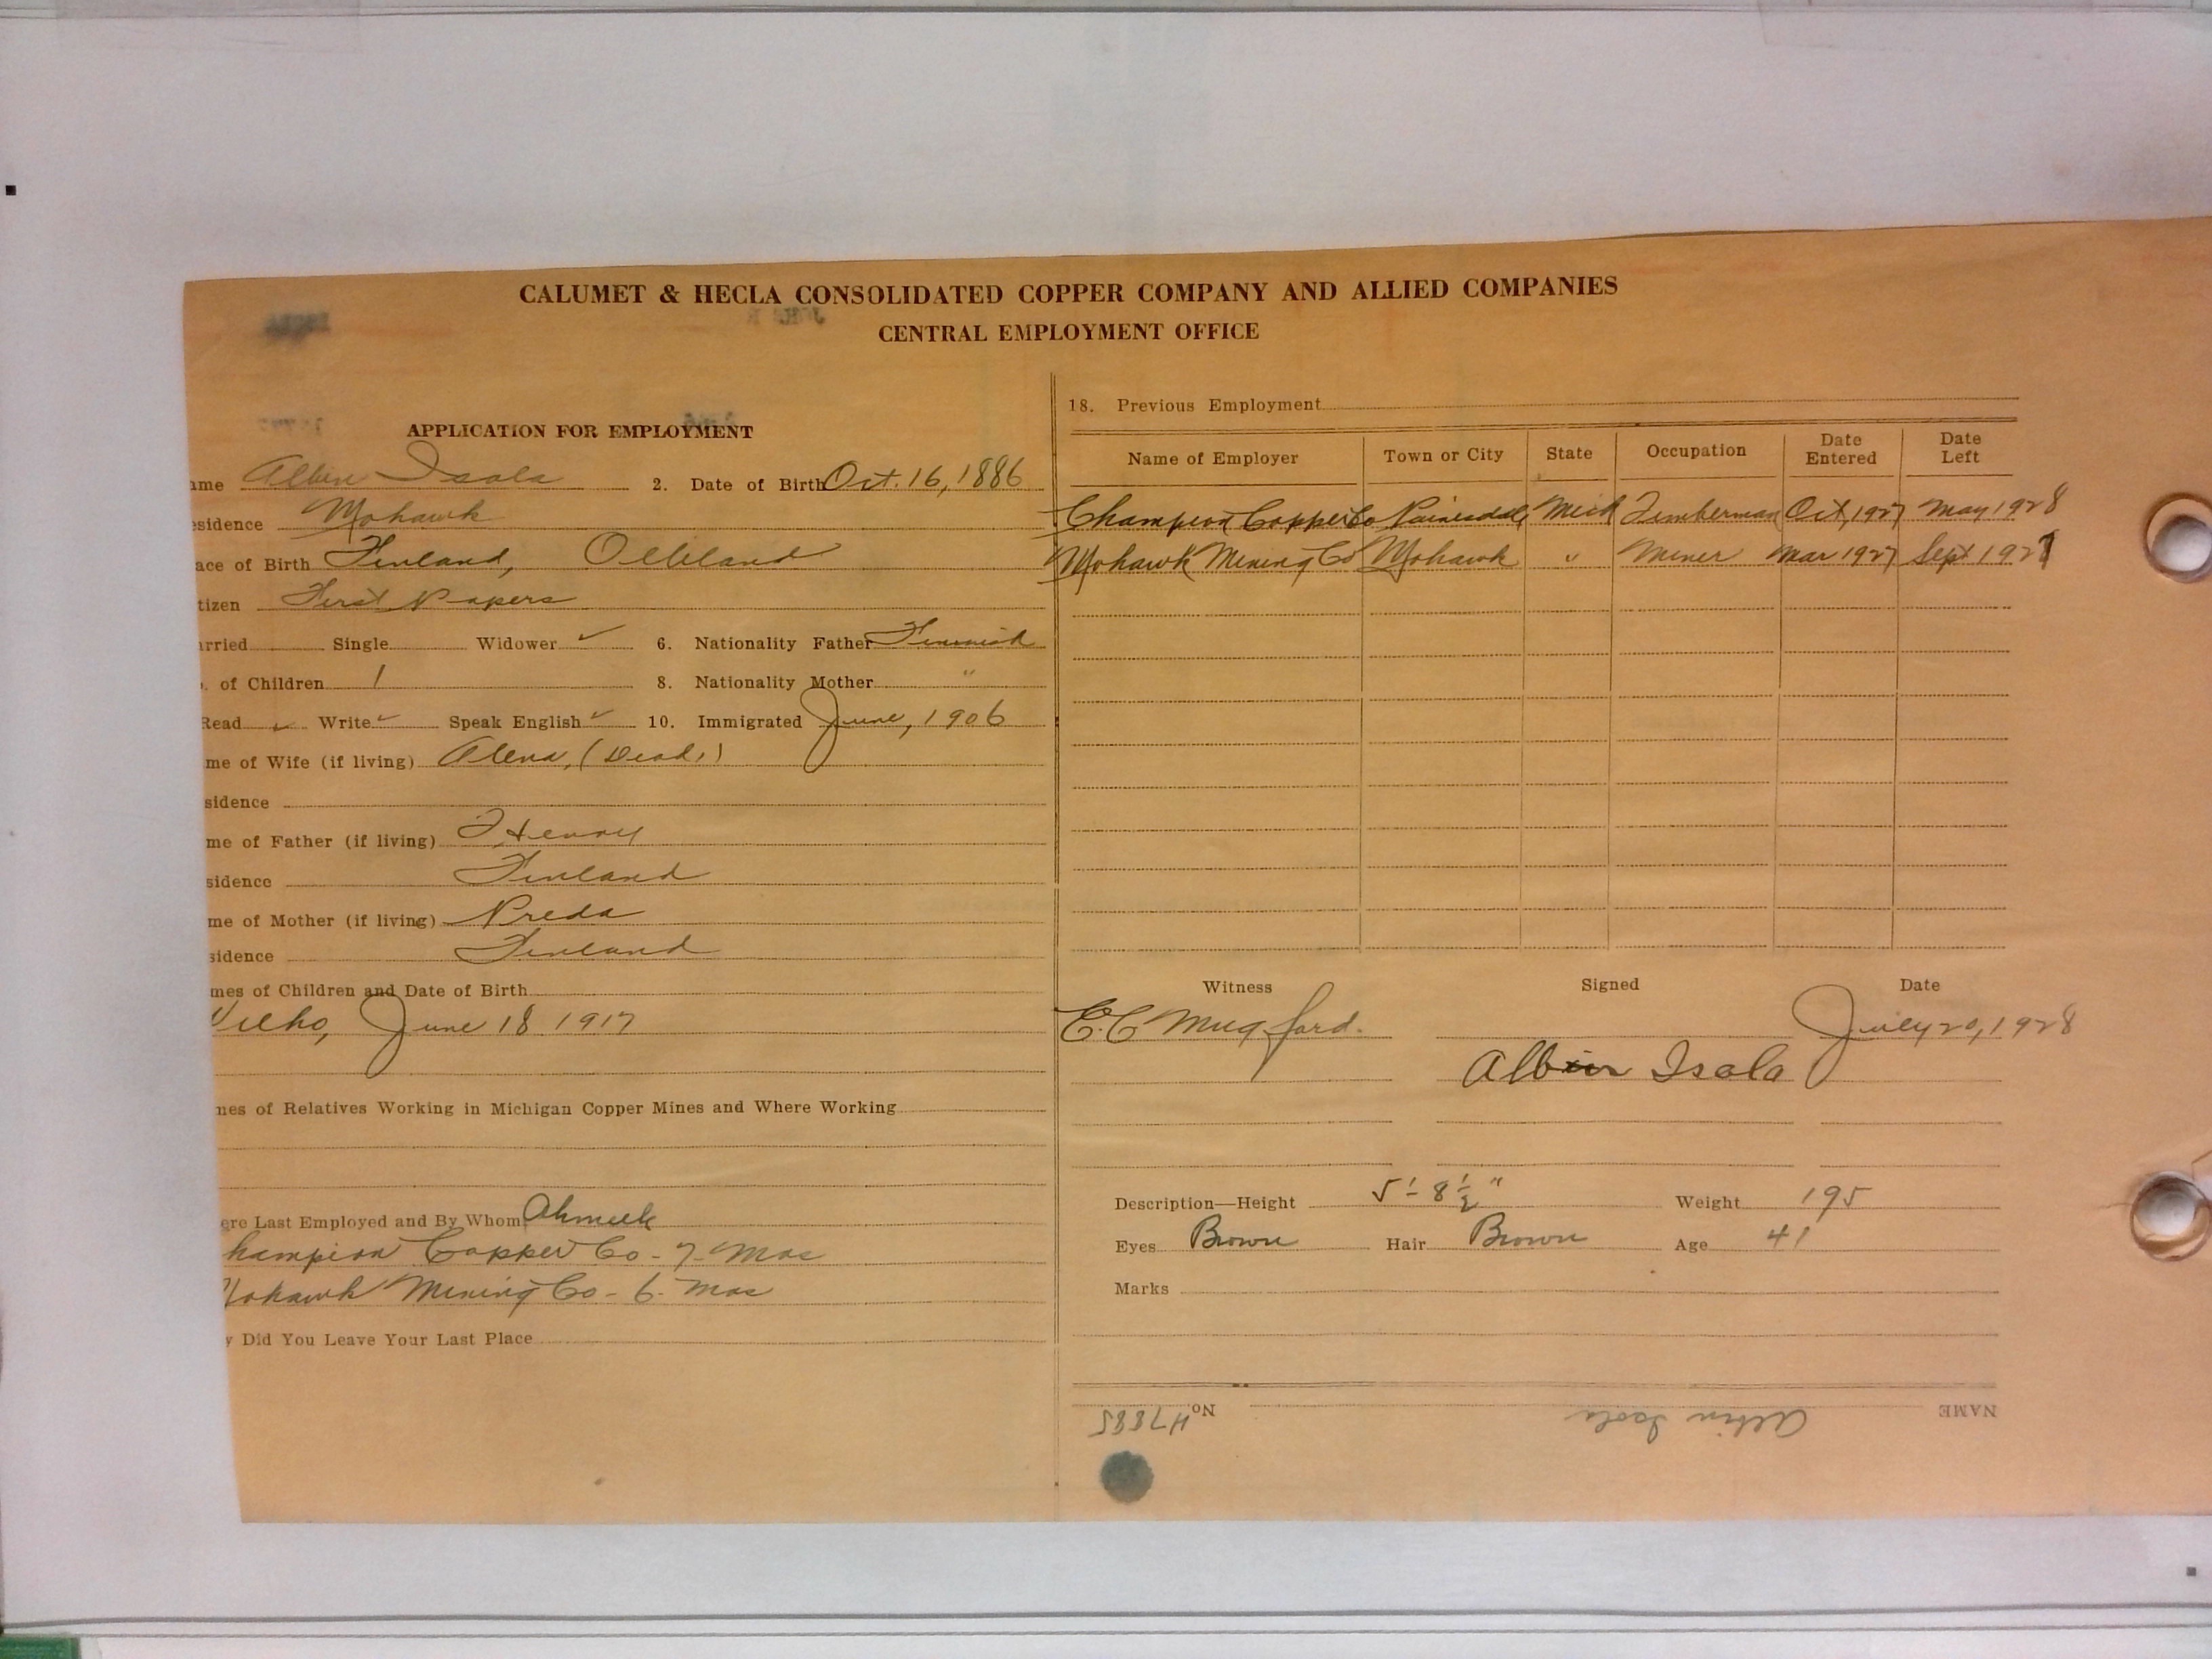 CALUMET & HECLA CONSOLIDATED COPPER COMPANY AND ALLIED COMPANIES
CENTRAL EMPLOYMENT OFFICE
APPLICATION FOR EMPLOYMENT
ame Albin Isola 2. Date of Birth Oct. 16, 1886
esidence Mohawk
ace of Birth Finland,
tizen First Papers
arried Single Widower ✓ 6. Nationality Father Finnish
. of Children 1 8. Nationality Mother "
Read ✓ Write ✓ Speak English ✓ 10. Immigrated June, 1906
me of Wife (if living) Alena, (Dead.)
sidence
me of Father (if living) Henry
sidence Finland
me of Mother (if living) Preda
sidence Finland
mes of Children and Date of Birth
June 18 1917
mes of Relatives Working in Michigan Copper Mines and Where Working
ere Last Employed and By Whom Ahmeek
hampion Copper Co - 7 - Mos
ohawk Mining Co - 6 - Mos
y Did You Leave Your Last Place
18. Previous Employment
Name of Employer Town or City State Occupation Date Entered Date Left
Champion Copper Co Painesdale Mich Timberman Oct, 1927 May 1928
Mohawk Mining Co Mohawk " Miner Mar 1927 Sept 1927
Witness Signed Date
E.C. Mugford. July 20, 1928
Albin Isola
Description—Height 5'-8½" Weight 195
Eyes Brown Hair Brown Age 41
Marks
NAME Albin Isola No. H7885